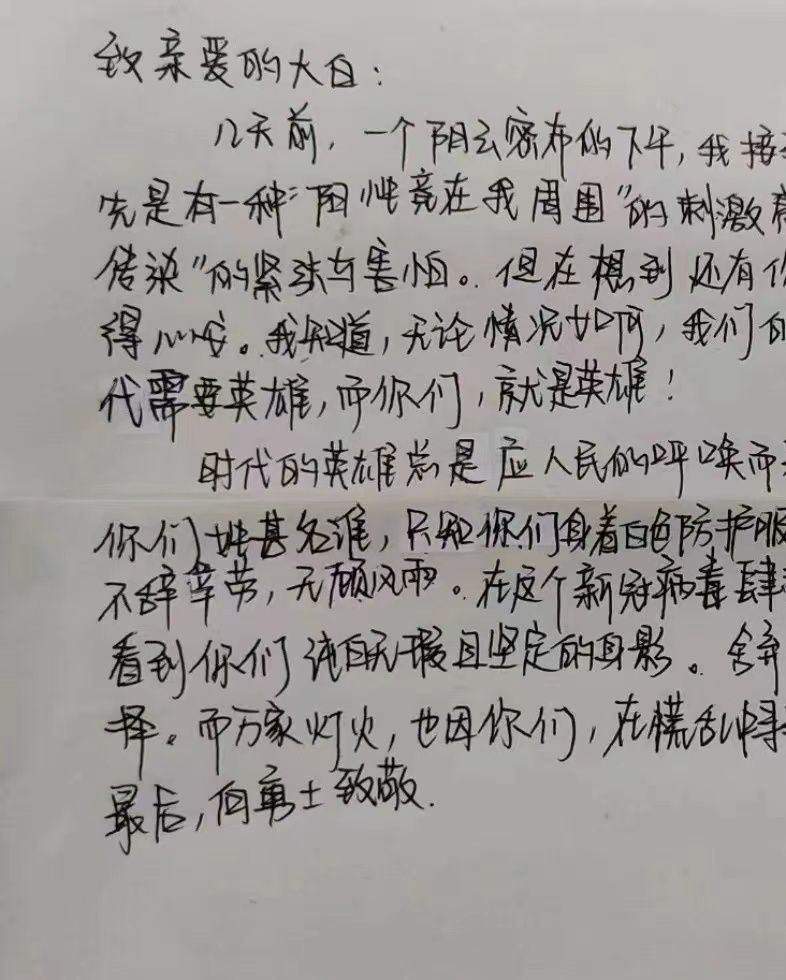 致亲爱的大白：
几天前，一个阴云密布的下午，我接
先是有一种“阳性竟在我周围”的刺激
传染”的紧张与害怕。但在想到还有你
得心安。我知道，无论情况如何，我们的
代需要英雄，而你们，就是英雄！
时代的英雄总是应人民的呼唤而
你们姓甚名谁，只知你们身着白色防护服
不辞辛劳，无顾风雨。在这个新冠病毒肆
看到你们纯白无瑕且坚定的身影。舍弃
择。而万家灯火，也因你们，在慌乱中得
最后，向勇士致敬.